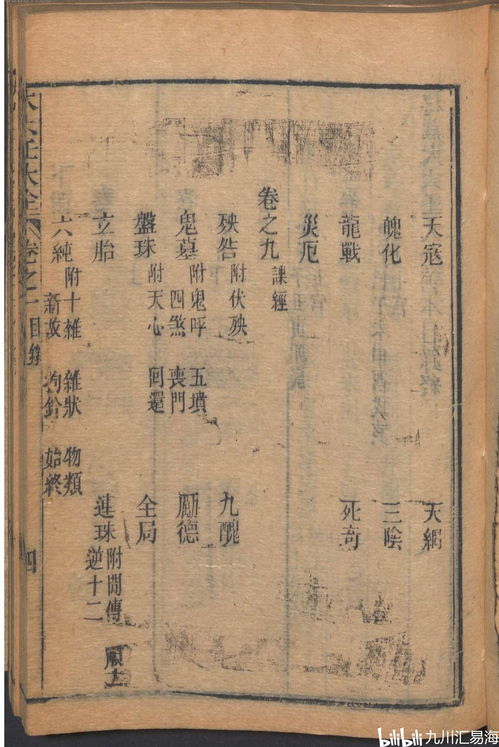 天寇 天網
魄化 三陰
龍戰 死奇
災厄
卷之九 課經
殃咎 附伏殃 九醜
鬼墓 附鬼呼 五墳 四煞 喪門 勵德
盤珠 附天心 回還 全局
立胎 連珠 附間傳 順十二 逆十二
六純 附十雜 雜狀 物類 新故 始終
六壬大全 卷之一 目錄 四
bilibili 九川汇易海